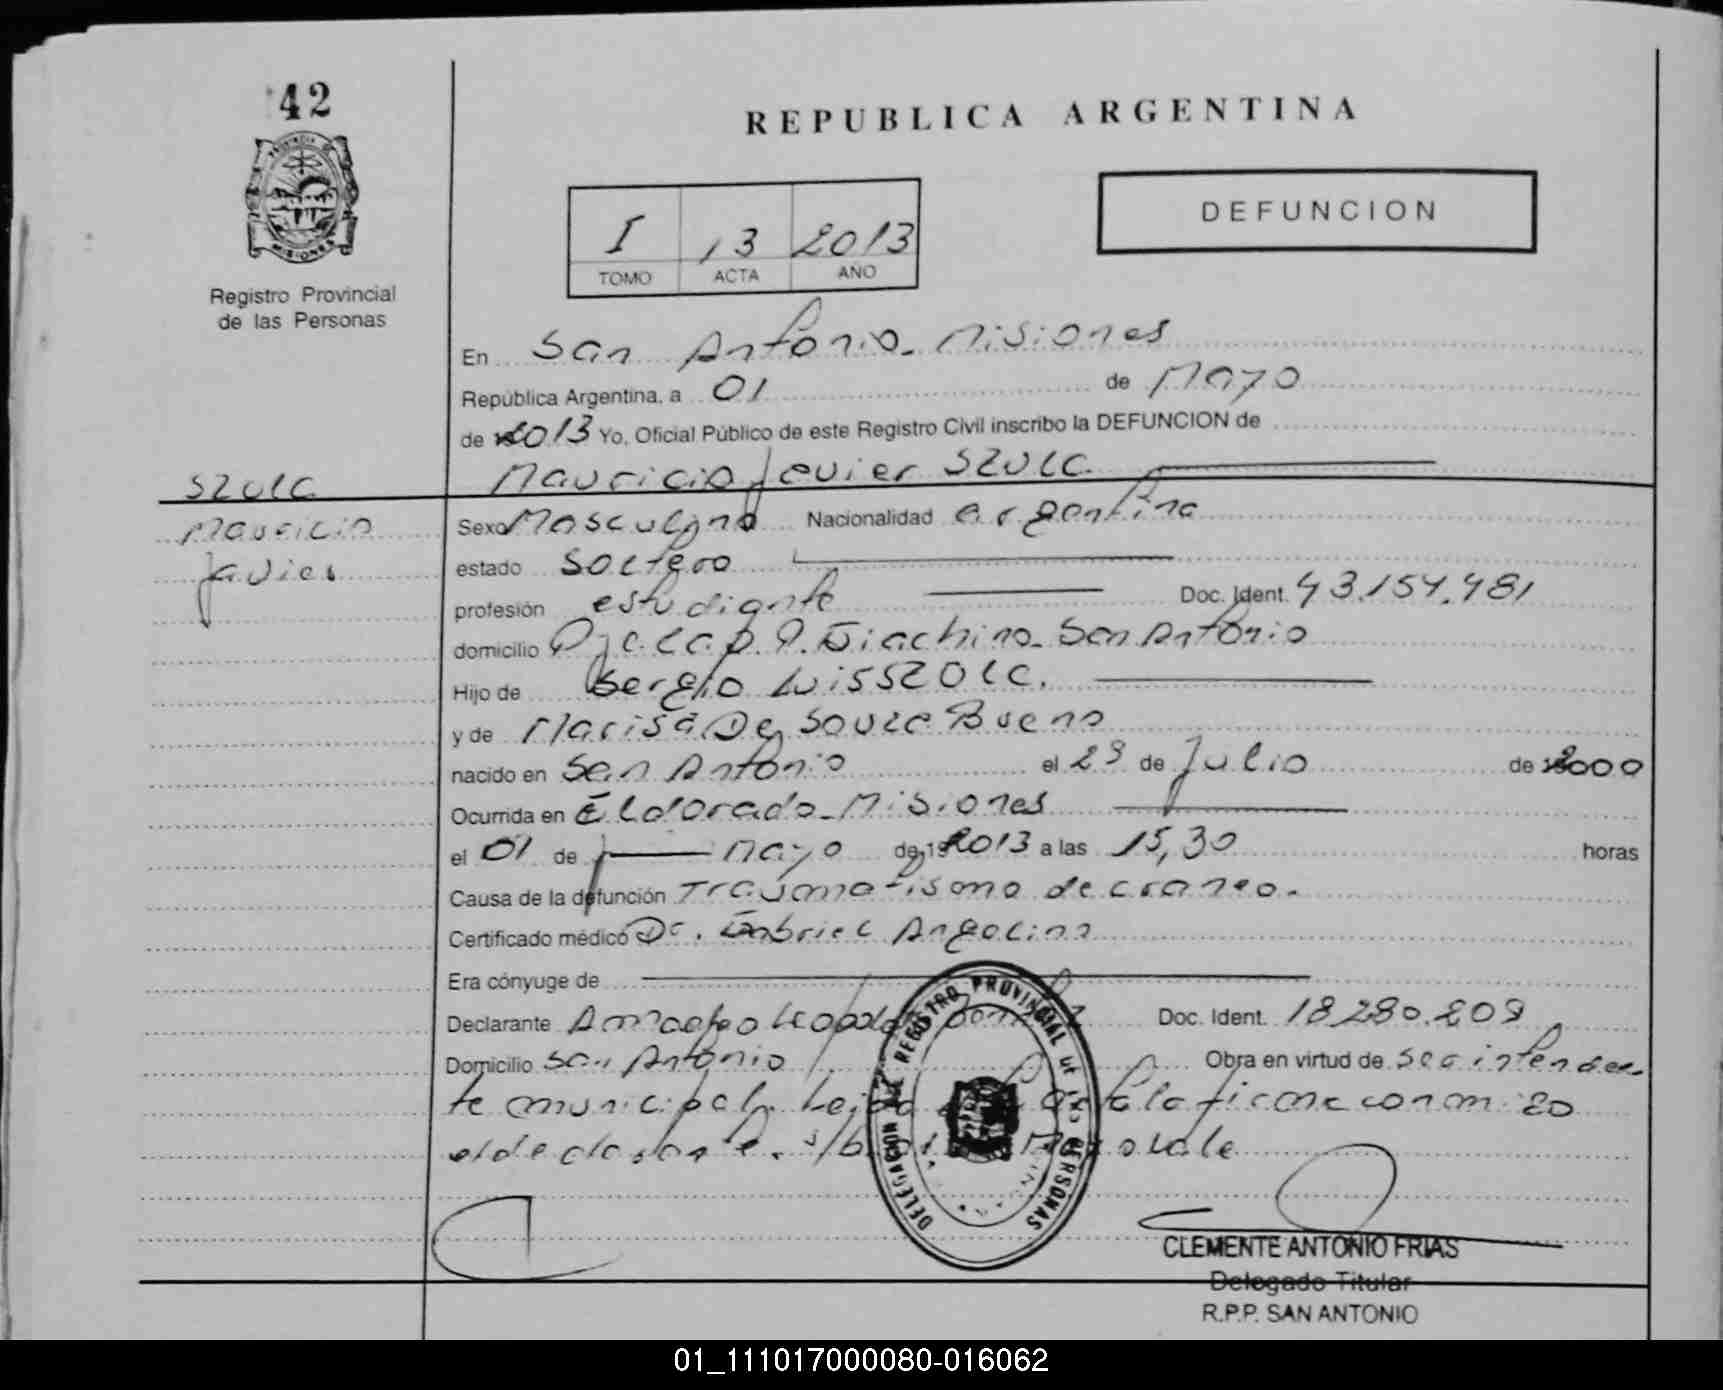 42
Registro Provincial
de las Personas
REPUBLICA ARGENTINA
DEFUNCION
I 13 2013
TOMO ACTA AÑO
En San Antonio. Misiones
República Argentina, a 01 de Mayo
de 2013 Yo, Oficial Público de este Registro Civil inscribo la DEFUNCION de
Mauricio Javier SZULC.
SZULC
Mauricio
Javier
Sexo Masculino Nacionalidad argentina
estado soltero
profesión estudiante Doc. Ident. 43.154.481
domicilio Pje. Cap. P. Giachino. San Antonio
Hijo de Sergio Luis SZULC.
y de Marisa De Souza Bueno
nacido en San Antonio el 23 de Julio de 2000
Ocurrida en Eldorado. Misiones
el 01 de Mayo de 2013 a las 15,30 horas
Causa de la defunción Traumatismo de craneo.
Certificado médico Dr. Gabriel Angelino
Era cónyuge de
Declarante Leopoldo Doc. Ident. 18.280.209
Domicilio San Antonio Obra en virtud de ser intenden-
te municipal. Leida acta la firma conmigo
el declarante. vale
DELEGACION REGISTRO PROVINCIAL DE LAS PERSONAS
CLEMENTE ANTONIO FRIAS
Delegado Titular
R.P.P. SAN ANTONIO
01_111017000080-016062